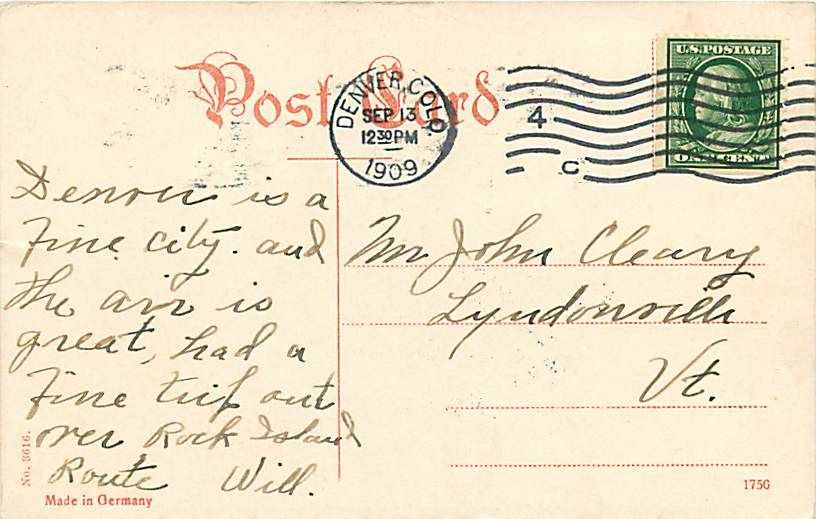 Post Card
DENVER, COLO.
SEP 13
12 30 PM
1909
4
C
U.S. POSTAGE
ONE CENT
Denver is a
fine city. and
the air is
great, had a
fine trip out
over Rock Island
Route Will.
Mr John Cleary
Lyndonville
Vt.
No. 3616.
Made in Germany
175G